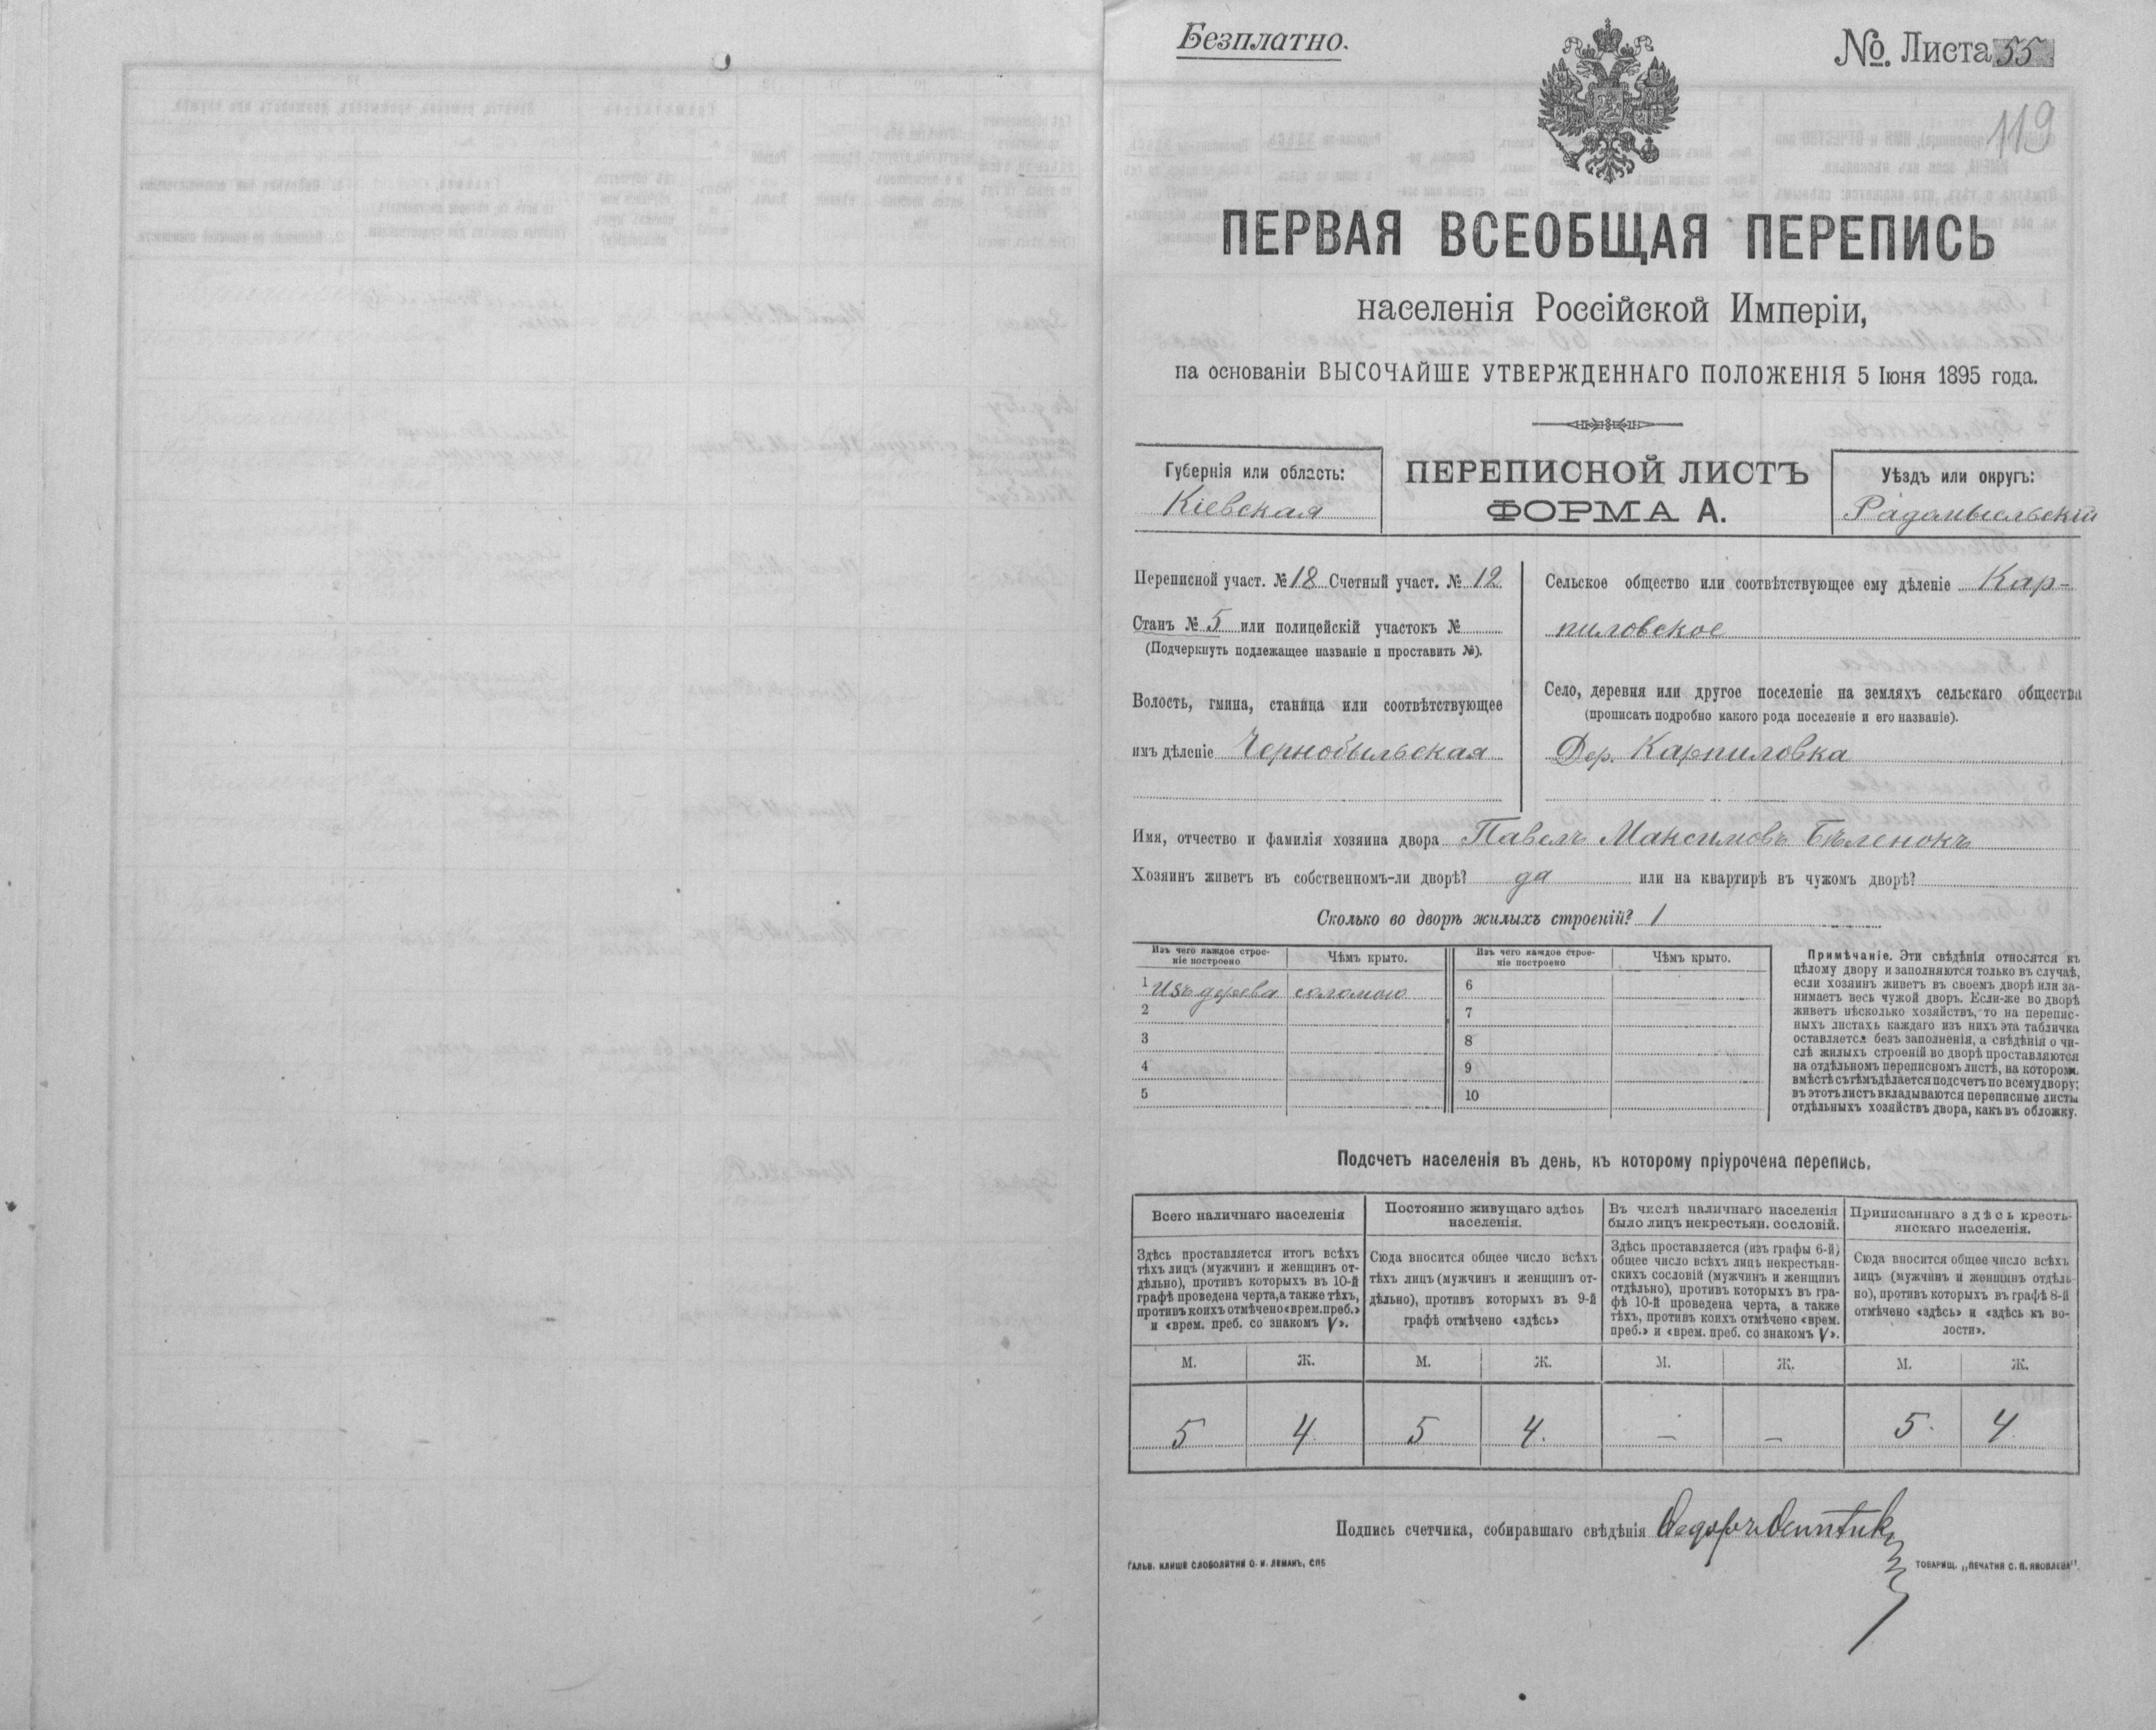 Безплатно.
№. Листа 55
119
ПЕРВАЯ ВСЕОБЩАЯ ПЕРЕПИСЬ
населенія Россійской Имперіи,
на основаніи ВЫСОЧАЙШЕ УТВЕРЖДЕННАГО ПОЛОЖЕНІЯ 5 Іюня 1895 года.
Губернія или область:
Кіевская
ПЕРЕПИСНОЙ ЛИСТЪ
ФОРМА А.
Уѣздъ или округъ:
Радомысльскій
Переписной участ. № 18 Счетный участ. № 12
Станъ № 5 или полицейскій участокъ №
(Подчеркнуть подлежащее названіе и проставить №).
Волость, гмина, станица или соотвѣтствующее
имъ дѣленіе Чернобыльская
Сельское общество или соотвѣтствующее ему дѣленіе Кар-
пиловское
Село, деревня или другое поселеніе на земляхъ сельскаго общества
(прописать подробно какого рода поселеніе и его названіе).
Дер. Карпиловка
Имя, отчество и фамилія хозяина двора Павелъ Максимовъ Бѣленокъ
Хозяинъ живетъ въ собственномъ-ли дворѣ? да или на квартирѣ въ чужомъ дворѣ?
Сколько во дворѣ жилыхъ строеній? 1
Изъ чего каждое строе-
ніе построено
Чѣмъ крыто.
Изъ чего каждое строе-
ніе построено
Чѣмъ крыто.
1 изъ дерева соломою
2
3
4
5
6
7
8
9
10
Примѣчаніе. Эти свѣдѣнія относятся къ
цѣлому двору и заполняются только въ случаѣ,
если хозяинъ живетъ въ своемъ дворѣ или за-
нимаетъ весь чужой дворъ. Если-же во дворѣ
живетъ нѣсколько хозяйствъ, то на перепис-
ныхъ листахъ каждаго изъ нихъ эта табличка
оставляется безъ заполненія, а свѣдѣнія о чи-
слѣ жилыхъ строеній во дворѣ проставляются
на отдѣльномъ переписномъ листѣ, на которомъ
вмѣстѣ съ тѣмъ дѣлается подсчетъ по всему двору;
въ этотъ листъ вкладываются переписные листы
отдѣльныхъ хозяйствъ двора, какъ въ обложку.
Подсчетъ населенія въ день, къ которому пріурочена перепись.
Всего наличнаго населенія
Здѣсь проставляется итогъ всѣхъ
тѣхъ лицъ (мужчинъ и женщинъ от-
дѣльно), противъ которыхъ въ 10-й
графѣ проведена черта, а также тѣхъ,
противъ коихъ отмѣчено «врем. преб.»
и «врем. преб. со знакомъ V».
Постоянно живущаго здѣсь
населенія.
Сюда вносится общее число всѣхъ
тѣхъ лицъ (мужчинъ и женщинъ от-
дѣльно), противъ которыхъ въ 9-й
графѣ отмѣчено «здѣсь»
Въ числѣ наличнаго населенія
было лицъ некрестьян. сословій.
Здѣсь проставляется (изъ графы 6-й)
общее число всѣхъ лицъ некрестьян-
скихъ сословій (мужчинъ и женщинъ
отдѣльно), противъ которыхъ въ гра-
фѣ 10-й проведена черта, а также
тѣхъ, противъ коихъ отмѣчено «врем.
преб.» и «врем. преб. со знакомъ V».
Приписаннаго здѣсь кресть-
янскаго населенія.
Сюда вносится общее число всѣхъ
лицъ (мужчинъ и женщинъ отдѣль-
но), противъ которыхъ въ графѣ 8-й
отмѣчено «здѣсь» и «здѣсь къ во-
лости».
М. Ж. М. Ж. М. Ж. М. Ж.
5 4. 5 4. — — 5. 4
Подпись счетчика, собиравшаго свѣдѣнія
ГАЛЬВ. КЛИШЕ СЛОВОЛИТНИ О. И. ЛЕМАНЪ, СПБ
ТОВАРИЩ. „ПЕЧАТНЯ С. П. ЯКОВЛЕВА".